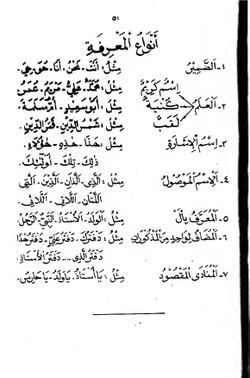 ٥١
أنواع المعرفة
١- الضمير مثل: أنت - نحن - أنا - هو - هي.
اسم كريم مثل: محمد - علي - مريم - عمر.
٢- العلم كنية مثل: أبو سعيد - أم سلمة.
لقب مثل: شمس الدين - قمر الدين.
٣- اسم الإشارة مثل: هذا - هذه - هؤلاء.
ذلك - تلك - أولئك.
٤- الاسم الموصول مثل: الذي - اللذان - الذين - التي.
اللتان - اللاتي - اللائي.
٥- المعرف بال مثل: الولد - الأستاذ - البيت - الرجل.
٦- المضاف لواحد من المذكورات مثل: دفترك - دفتر علي - دفتر هذا
دفتر الذي... دفتر الأستاذ.
٧- المنادى المقصود مثل: يا أستاذ - يا ولد - يا حارس.